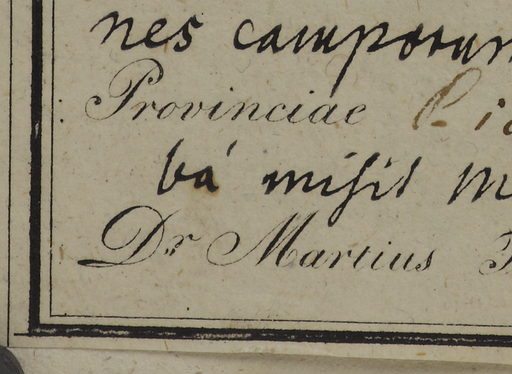 nes camporum
Provinciae
bá misit M
Dr Martius